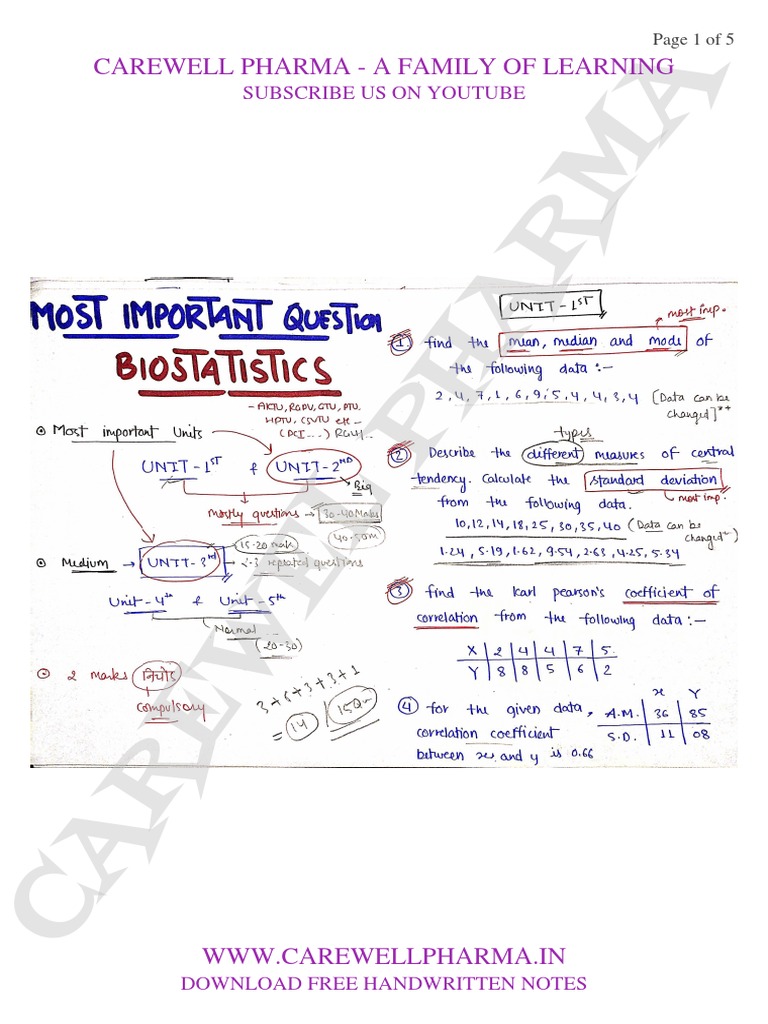 Page 1 of 5
CAREWELL PHARMA - A FAMILY OF LEARNING
SUBSCRIBE US ON YOUTUBE
CAREWELL PHARMA
MOST IMPORTANT QUESTION
BIOSTATISTICS
- AKTU, RGPV, GTU, PTU,
HPTU, CSVTU etc -
(PCI ...) RGUH..
⊙ Most important Units
UNIT-1ST & UNIT-2ND
Big
Mostly questions → 30-40 Marks
40-50m
15-20 mak
⊙ Medium → UNIT-3rd → 2-3 repeated questions
Unit-4th & Unit-5th
Normal ...
(20-30)
⊙ 2 marks निचोड़
compulsory
3+5+3+3+1
= 14 / 15Qu
UNIT-1ST
most imp.
① find the mean, median and mode of
the following data :-
2, 4, 7, 1, 6, 9, 5, 4, 4, 3, 4 [Data can be
changed]**
types
② Describe the different measures of central
tendency. Calculate the standard deviation
most imp.
from the following data.
10, 12, 14, 18, 25, 30, 35, 40 (Data can be
changed)
1.24, 5.19, 1.62, 9.54, 2.63, 4.25, 5.34
③ find the karl pearson's coefficient of
correlation from the following data :-
X 2 4 4 7 5
Y 8 8 5 6 2
④ for the given data,
x Y
A.M. 36 85
correlation coefficient
S.D. 11 08
between x and y is 0.66
WWW.CAREWELLPHARMA.IN
DOWNLOAD FREE HANDWRITTEN NOTES